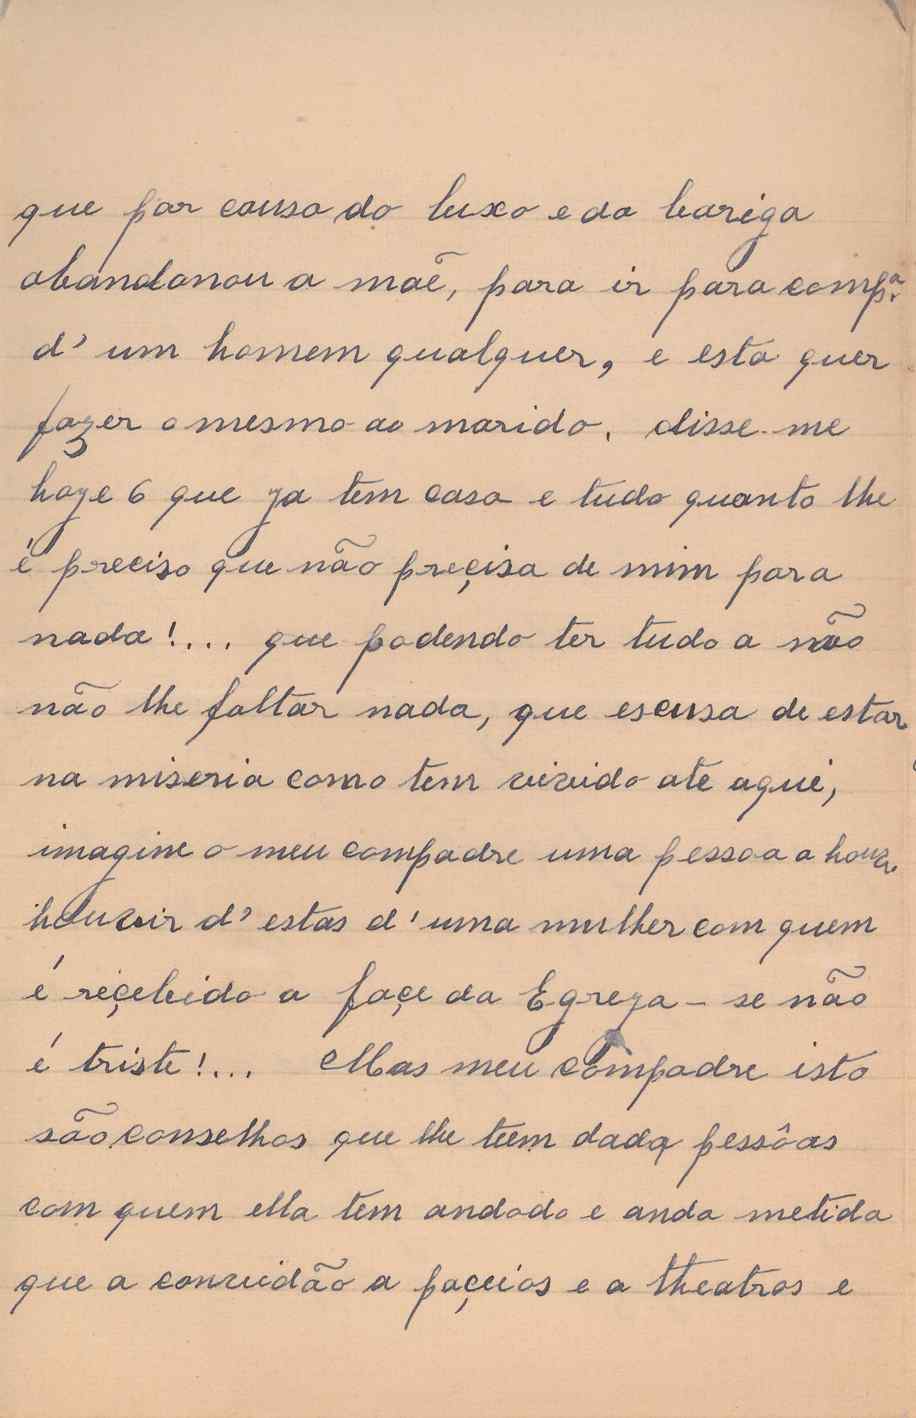 que por causa do luxo e da bariga
abandonou a maẽ, para ir para comp.ª
d' um homem qualquer, e esta quer
fazer o mesmo ao marido. disse-me
hoje 6 que ja tem casa e tudo quanto lhe
é preciso que não preçisa de mim para
nada!... que podendo ter tudo a não
não lhe faltar nada, que escusa de estar
na miseria como tem vivido ate aqui,
imagine o meu compadre uma pessoa a houvi
houvir d' estas d' uma mulher com quem
é reçebido a façe da Egreja - se não
é triste!... Mas meu compadre isto
são conselhos que lhe teem dado pessôas
com quem ella tem andado e anda metida
que a convidão a paçeios e a theatros e